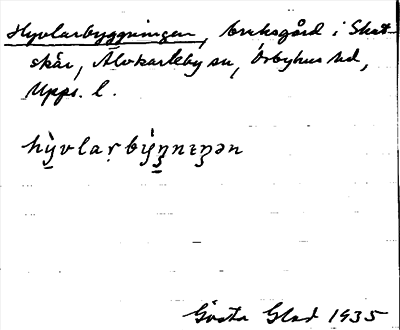 Hyvlarbyggningen, bruksgård i Skut-
skär, Älvkarleby sn, Örbyhus hd,
Upps. l.
hỳ̱vlaṛbý̱ŋnɪŋən
Gösta Glad 1935